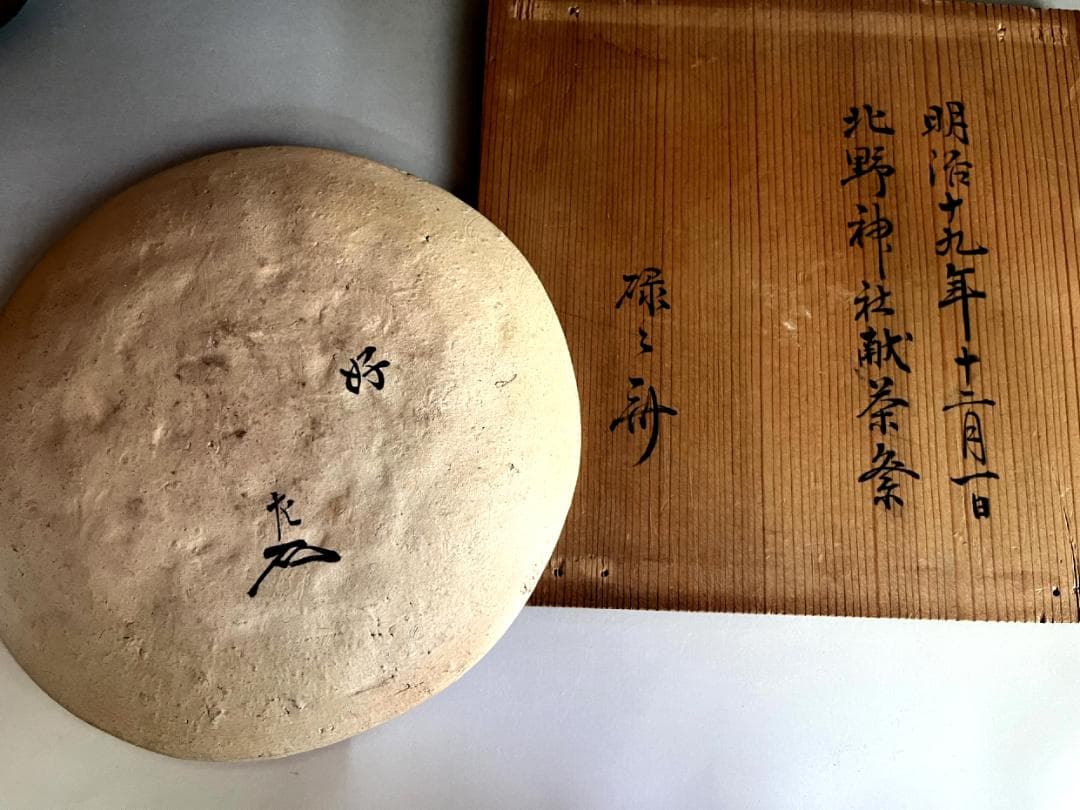 明治十九年十二月一日
北野神社献茶祭
碌々斎
好
左